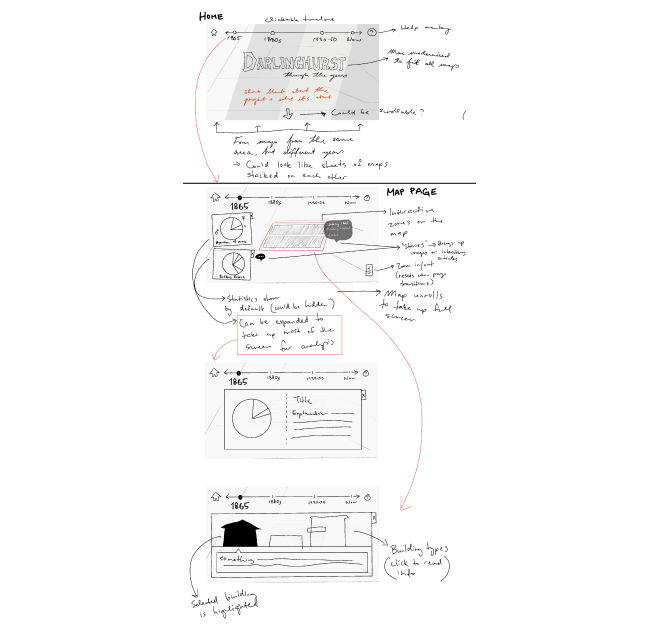 HOME
clickable timeline
1865 1880s 1930-50 Now ?
Help overlay
DARLINGHURST
through the years
More modernised
to fit all maps
about the
project + what it's about
Could be scrollable?
Four maps from the same
area, but different years
→ Could look like sheets of maps
stacked on each other
MAP PAGE
1865 1880s 1930-50 Now ?
Interactive
zones on the
map
"stories" → Brings up
images or interesting
articles
Zoom in/out
(resets when page
transitions)
Map unrolls
to take up full
screen
Statistics shown
by default (could be hidden)
Can be expanded to
take up most of the
screen for analysis
1865 1880s 1930-50 Now ?
Title
Explanation
1865 1880s 1930-50 Now ?
Something
Building types
(click to read
info)
Selected building
is highlighted